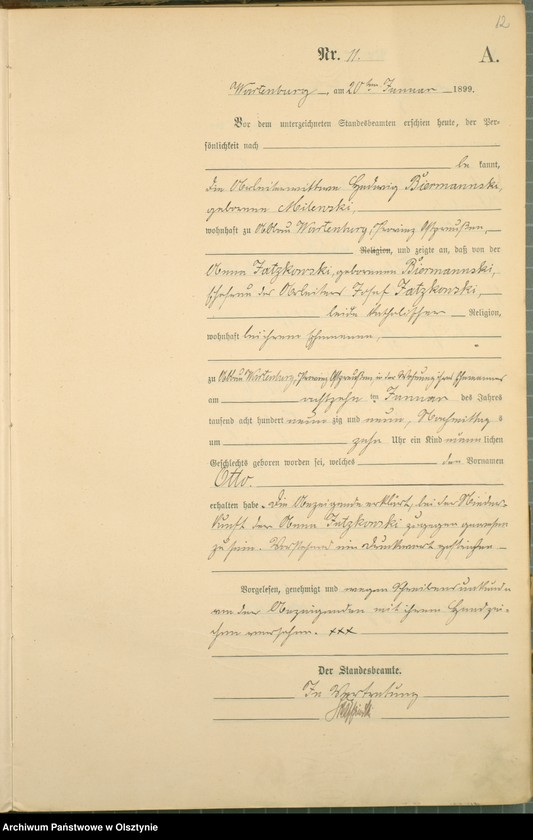 12
Nr. 11.
A.
Wartenburg, am 20ten Januar 1899.
Vor dem unterzeichneten Standesbeamten erschien heute, der Per-
sönlichkeit nach
be kannt,
die Arbeiterwittwe Hedwig Biermannski,
geborene Milewski,
wohnhaft zu Abbau Wartenburg, Provinz Ostpreußen,
Religion, und zeigte an, daß von der
Anna Jatzkowski, geborenen Biermannski,
Ehefrau des Arbeiters Josef Jatzkowski,
beide katholischer Religion,
wohnhaft bei ihrem Ehemanne,
zu Abbau Wartenburg, Provinz Ostpreußen, in der Wohnung ihres Ehemannes
am achtzehnten Januar des Jahres
tausend acht hundert neunzig und neun, Nachmittags
um zehn Uhr ein Kind männlichen
Geschlechts geboren worden sei, welches den Vornamen
Otto
erhalten habe. Die Anzeigende erklärt, bei der Nieder-
kunft der Anna Jatzkowski zugegen gewesen
zu sein. Vorstehend ein Druckwort gestrichen
Vorgelesen, genehmigt und wegen Schreibensunkunde
von der Anzeigenden mit ihrem Handzei-
chen versehen. xxx
Der Standesbeamte.
In Vertretung
Archiwum Państwowe w Olsztynie